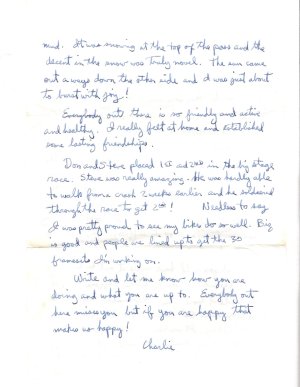 mud. It was snowing at the top of the pass and the
decent in the snow was truly novel. The sun came
out a ways down the other side and I was just about
to burst with joy!
Everybody out there is so friendly and active
and healthy. I really felt at home and established
some lasting friendships.
Don and Steve placed 1st and 2nd in the big stage
race. Steve was really amazing. He was hardly able
to walk from a crash 2 weeks earlier and he
through the race to get 2nd! Needless to say
I was pretty proud to see my bikes do so well. Biz
is good and people are lined up to get the 30
framesets I'm working on.
Write and let me know how you are
doing and what you are up to. Everybody out
here misses you but if you are happy that
makes us happy!
Charlie